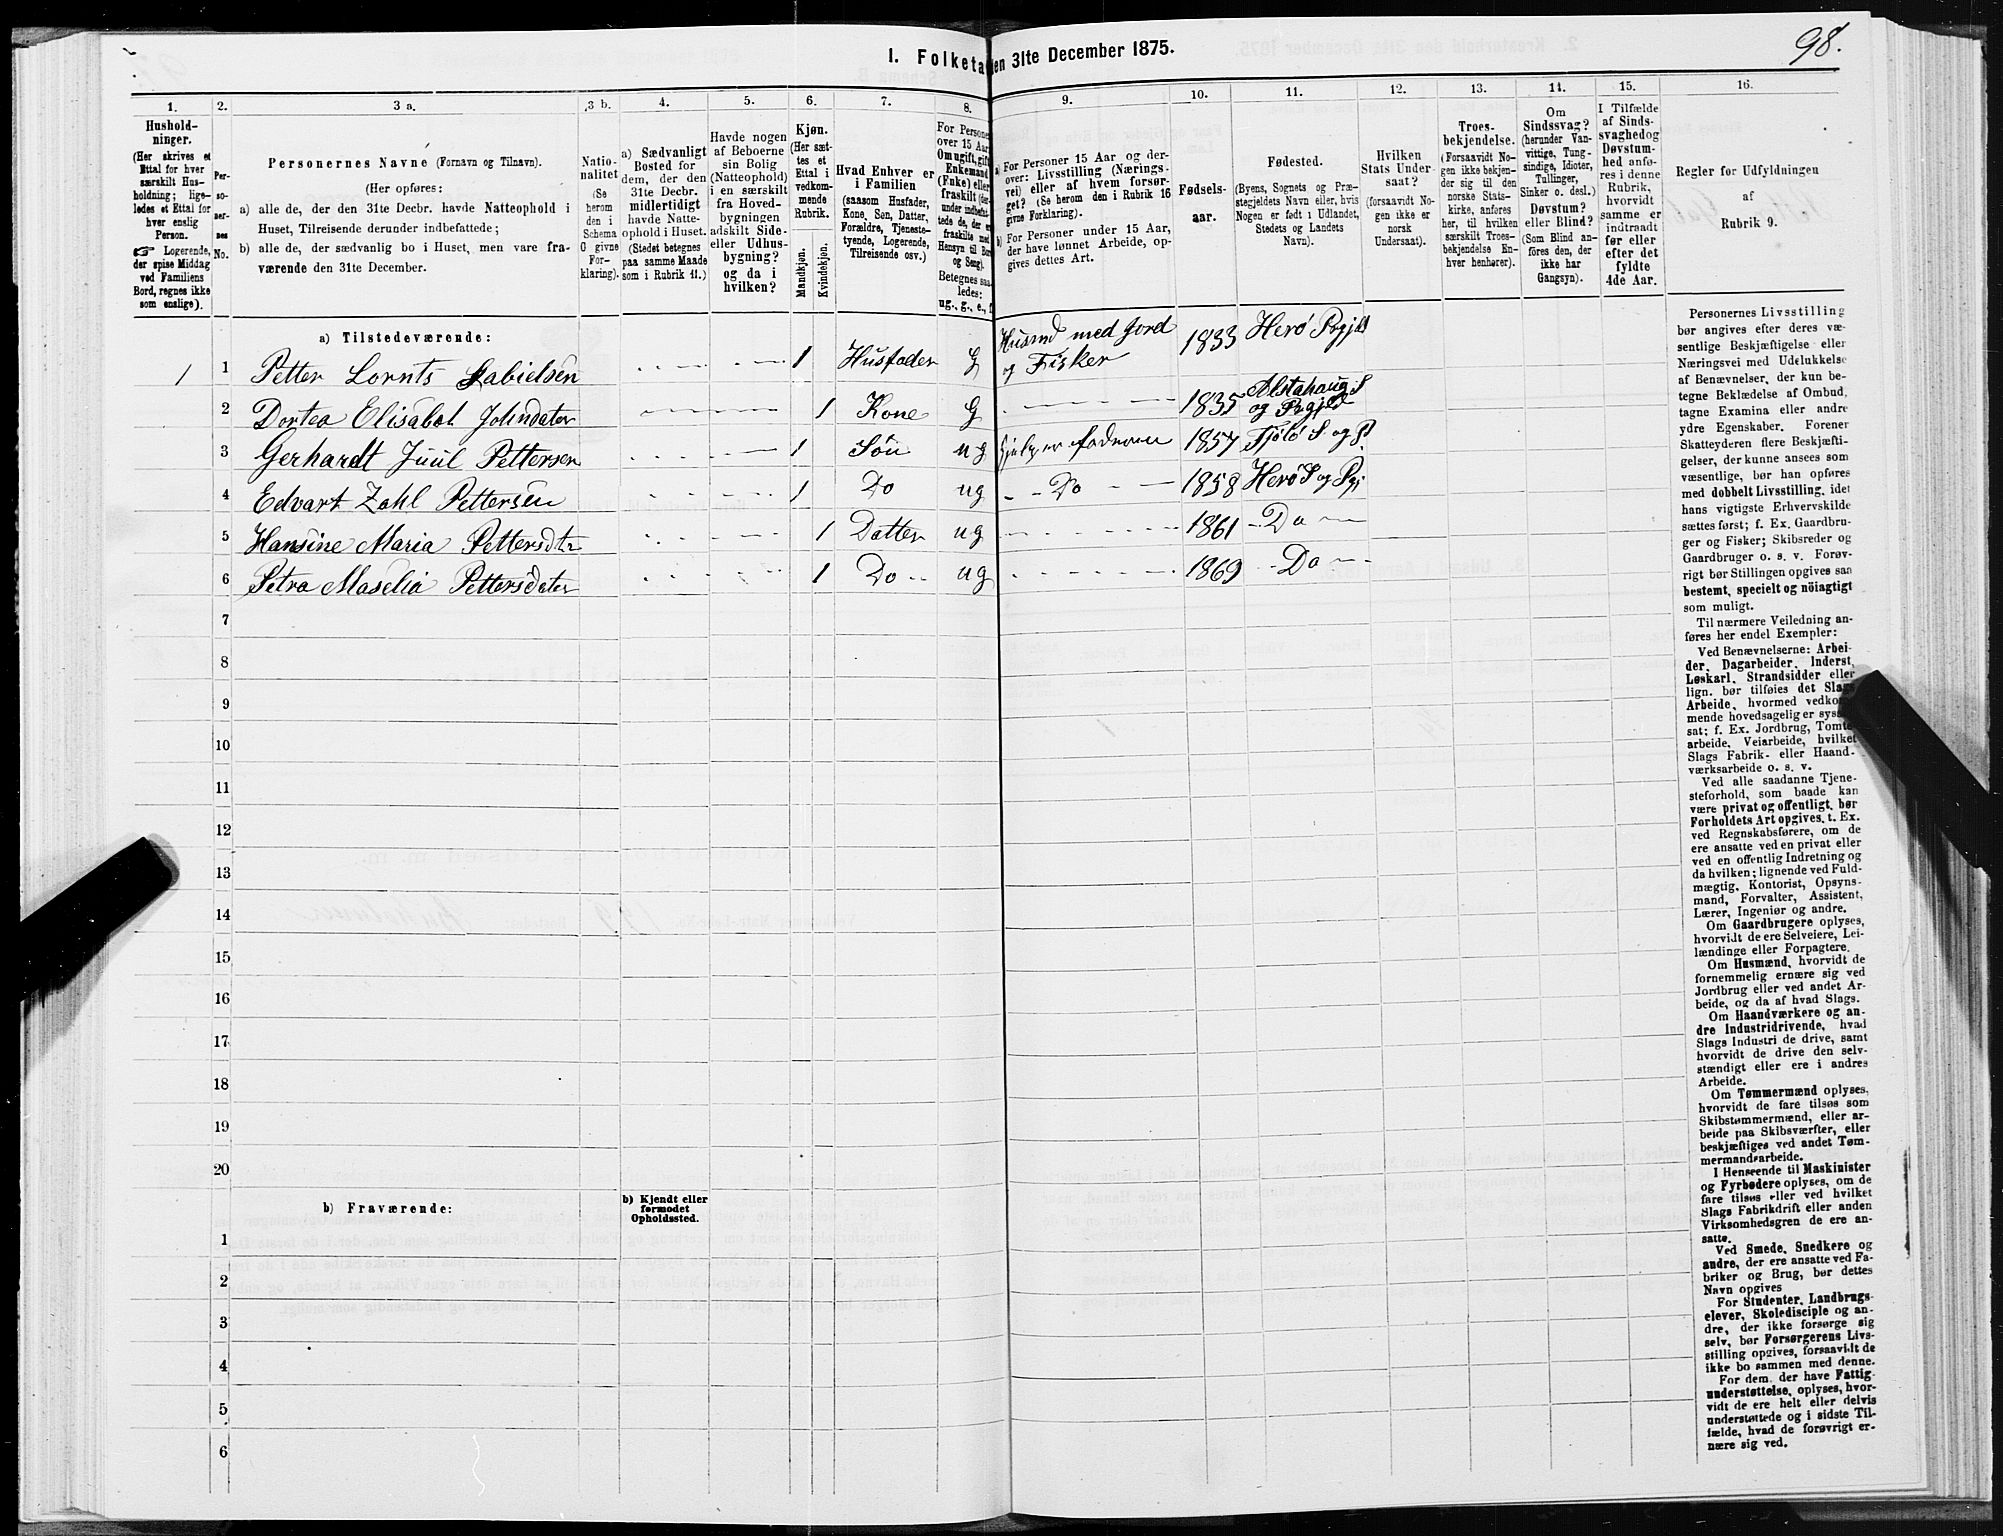 98.
I. Folketa en 31te December 1875.
1. 2. 3 a. 3 b. 4. 5. 6. 7. 8. 9. 10. 11. 12. 13. 14. 15. 16.
Hushold-
ninger.
(Her skrives et
Ettal for hver
særskilt Hus-
holdning; lige-
ledes et Ettal for
hver enslig
Person.
☞ Logerende,
der spise Middag
ved Familiens
Bord, regnes ikke
som enslige).
Per-
so-
ner-
nes
No.
Personernes Navne (Fornavn og Tilnavn).
(Her opføres:
a) alle de, der den 31te Decbr. havde Natteophold i
Huset, Tilreisende derunder indbefattede;
b) alle de, der sædvanlig bo i Huset, men vare fra-
værende den 31te December.
Natio-
nalitet
(Se
herom
den i
Schema
O givne
For-
klaring).
a) Sædvanligt
Bosted for
dem, der den
31te Decbr.
midlertidigt
havde Natte-
ophold i Huset.
(Stedet betegnes
paa samme Maade
som i Rubrik 11.)
Havde nogen
af Beboerne
sin Bolig
(Natteophold)
i en særskilt
fra Hoved-
bygningen
adskilt Side-
eller Udhus-
bygning?
og da i
hvilken?
Kjøn.
(Her sæt-
tes et
Ettal i
vedkom-
mende
Rubrik.
Mandkjøn.
Kvindekjøn.
Hvad Enhver er
i Familien
(saasom Husfader,
Kone, Søn, Datter,
Forældre, Tjeneste-
tyende, Logerende,
Tilreisende osv.)
For Persone
over 15 Aar
Om ugift, gift
Enkemand
(Enke) eller
fraskilt (der-
under indbefat-
tede de, der er
fraskilte med
Hensyn til Bor
og Seng).
Betegnes saa-
ledes:
ug., g., e., f.
a) For Personer 15 Aar og der-
over: Livsstilling (Nærings-
vei) eller af hvem forsør-
get? (Se herom den i Rubrik 16
givne Forklaring).
b) For Personer under 15 Aar,
der have lønnet Arbeide, op-
gives dettes Art.
Fødsels-
aar.
Fødested.
(Byens, Sognets og Præ-
stegjeldets Navn eller, hvis
Nogen er født i Udlandet,
Stedets og Landets
Navn).
Hvilken
Stats Under-
saat?
(forsaavidt No-
gen ikke er
norsk
Undersaat).
Troes-
bekjendelse.
(Forsaavidt No-
gen ikke bekjen-
der sig til den
norske Stats-
kirke, anføres
her, til hvilken
særskilt Troes-
bekjendelse En-
hver henhører).
Om
Sindssvag?
(herunder Van-
vittige, Tung-
sindige, Idioter,
Tullinger,
Sinker o. desl.)
Døvstum?
eller Blind?
(Som Blind an-
føres den, der
ikke har
Gangsyn).
I Tilfælde
af Sinds-
svaghed og
Døvstum-
hed anfø-
res i denne
Rubrik,
hvorvidt
samme er
indtraadt
før eller
efter det
fyldte
4de Aar.
Regler for Udfyldningen
af
Rubrik 9.
a) Tilstedeværende:
1 1 Petter Lornts Gabielsen 1 Husfader G Husmd med Jord og Fisker 1833 Herø Prgjld
2 Dortea Elisabet Johndater 1 Kone G 1835 Alstahaug S og Prgjeld
3 Gerhardt Juul Pettersen 1 Søn ug hjelper faderen 1857 Tjøtø S og P
4 Edvart Zahl Pettersen 1 Do ug Do 1858 Herø S og Pgj
5 Hansine Maria Pettersdtr 1 Datter ug 1861 Do
6 Petra Maselia Pettersdater 1 Do ug 1869 Do
7
8
9
10
11
12
13
14
15
16
17
18
19
20
b) Fraværende:
b) Kjendt eller
formodet
Opholdssted.
1
2
3
4
5
6
Personernes Livsstilling
bør angives efter deres væ-
sentlige Beskjæftigelse eller
Næringsvei med Udelukkelse
af Benævnelser, der kun be-
tegne Beklædelse af Ombud,
tagne Examina eller andre
ydre Egenskaber. Forener
Skatteyderen flere Beskjæfti-
gelser, der kunne ansees som
væsentlige, bør han opføres
med dobbelt Livsstilling, idet
hans vigtigste Erhvervskilde
sættes først; f. Ex. Gaardbru-
ger og Fisker; Skibsreder og
Gaardbruger o. s. v. Forøv-
rigt bør Stillingen opgives saa
bestemt, specielt og nöiagtigt
som muligt.
Til nærmere Veiledning an-
føres her endel Exempler:
Ved Benævnelserne: Arbei-
der, Dagarbeider, Inderst,
Løskarl, Strandsidder eller
lign. bør tilføies det Slags
Arbeide, hvormed vedkom-
mende hovedsagelig er syssel-
sat; f. Ex. Jordbrug, Tomte-
arbeide, Veiarbeide, hvilket
Slags Fabrik- eller Haand-
værksarbeide o. s. v.
Ved alle saadanne Tjene-
steforhold, som baade kan
være privat og offentligt, bør
Forholdets Art opgives, t. Ex.
ved Regnskabsførere, om de
ere ansatte ved en privat eller
ved en offentlig Indretning og
da hvilken; lignende ved Fuld-
mægtig, Kontorist, Opsyns-
mand, Forvalter, Assistent,
Lærer, Ingeniør og andre.
Om Gaardbrugere oplyses,
hvorvidt de ere Selveiere, Lei-
lændinge eller Forpagtere.
Om Husmænd, hvorvidt de
fornemmelig ernære sig ved
Jordbrug eller ved andet Ar-
beide, og da af hvad Slags.
Om Haandværkere og an-
dre Industridrivende, hvad
Slags Industri de drive, samt
hvorvidt de drive den selv-
stændigt eller ere i andres
Arbeide.
Om Tømmermænd oplyses,
hvorvidt de fare tilsøs som
Skibstømmermænd, eller ar-
beide paa Skibsværfter, eller
beskjæftiges ved andet Tøm-
mermandsarbeide.
I Henseende til Maskinister
og Fyrbødere oplyses, om de
fare tilsøs eller ved hvilket
Slags Fabrikdrift eller anden
Virksomhedsgren de ere an-
satte.
Ved Smede, Snedkere og
andre, der ere ansatte ved Fa-
briker og Brug, bør dettes
Navn opgives
For Studenter, Landbrugs-
elever, Skoledisciple og an-
dre, der ikke forsørge sig
selv, bør Forsørgerens Livs-
stilling opgives, forsaavidt de
ikke bo sammen med denne.
For dem, der have Fattig-
understøttelse, oplyses, hvor-
vidt de ere helt eller delvis
understøttede og i sidste Til-
fælde, hvad de forøvrigt er-
nære sig ved.